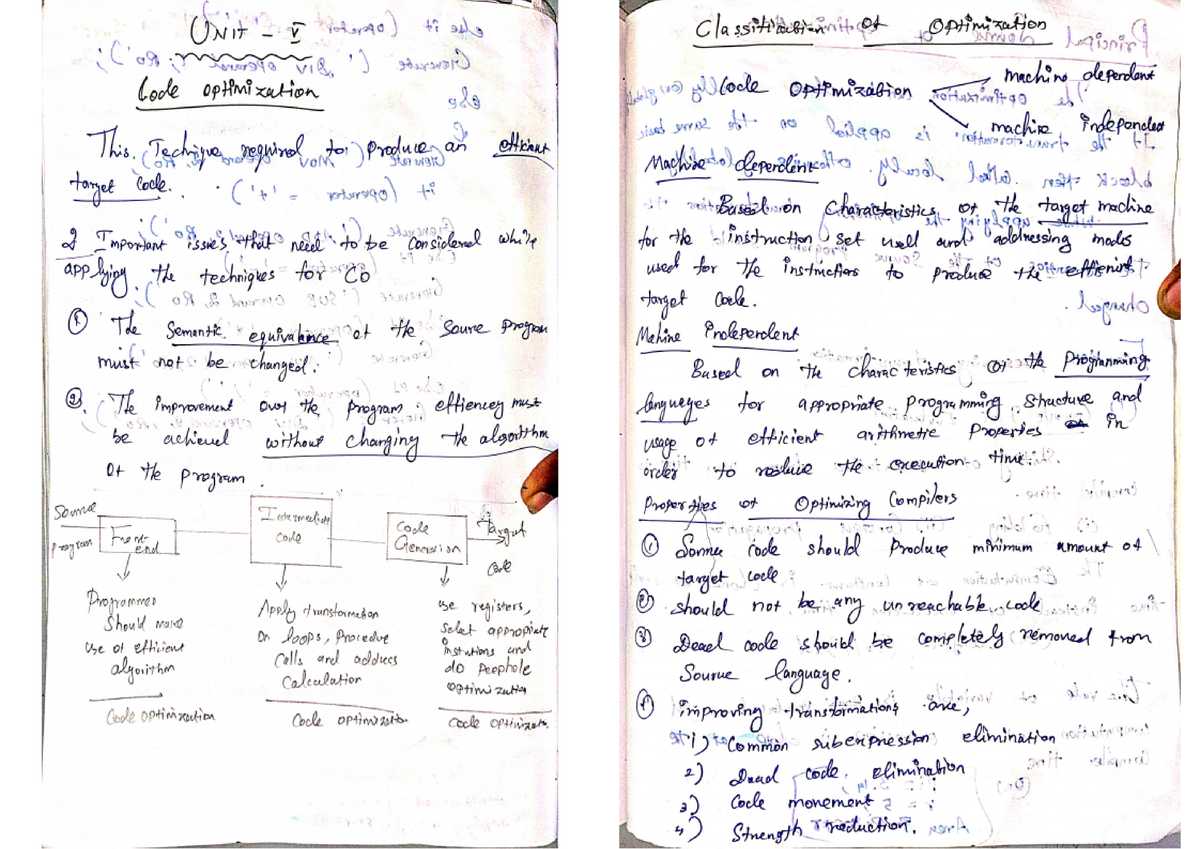 UNIT - V
Code optimization
This Technique required to produce an efficient
target code.
2 Important issues that need to be considered while
applying the techniques for CO
① The Semantic equivalence of the Source program
must not be changed.
② The improvement over the program efficiency must
be achieved without changing the algorithm
of the program.
Source
program
Front
end
Intermediate
code
Code
Generation
Target
Code
Programmer
Should make
use of efficient
algorithm
Code optimization
Apply transformation
on loops, Procedure
Calls and address
Calculation
Code optimization
use registers,
Select appropriate
Instutions and
do Peephole
optimization
Code optimization
Classification of Optimization
Code Optimization
machine dependent
machine independent
Machine dependent
Based on Characteristics of the target machine
for the instruction set used and addressing modes
used for the instructions to produce the efficient
target code.
Mahine Independent
Based on the characteristics of the Programming
languages for appropriate programming structure and
usage of efficient arithmetic Properties in
order to reduce the execution time.
Properties of Optimizing Compilers
① Source code should Produce minimum amount of
target code
② should not be any unreachable code
③ Dead code should be completely removed from
Source language.
④ improving transformations are,
1) Common subexpression elimination
2) Dead code elimination
3) Code movement
4) Strength reduction.